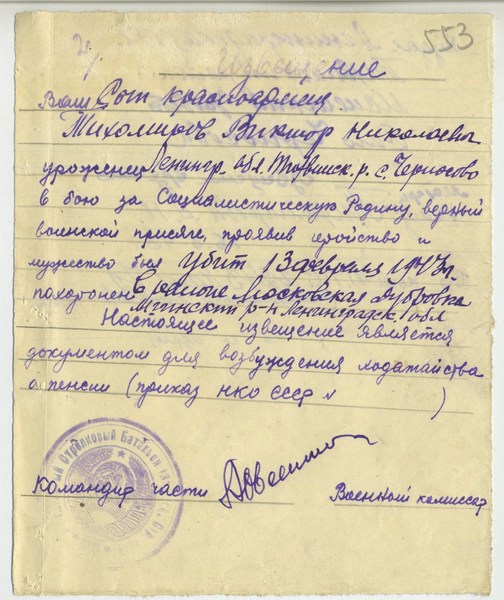 553
2
Извещение
Ваш Сын красноармеец
Тихомиров Виктор Николаевич
уроженец Ленингр. обл. Тосненск. р. с. Черносово
в бою за Социалистическую Родину, верный
воинской присяге, проявив геройство и
мужество был убит 13 февраля 1943 г.
похоронен Московская Дубровка
Мгинский р-н Ленинградск. обл
Настоящее извещение является
документом для возбуждения ходатайства
о пенсии (приказ НКО СССР № )
Стрелковый Батальон
Командир части Военный комиссар